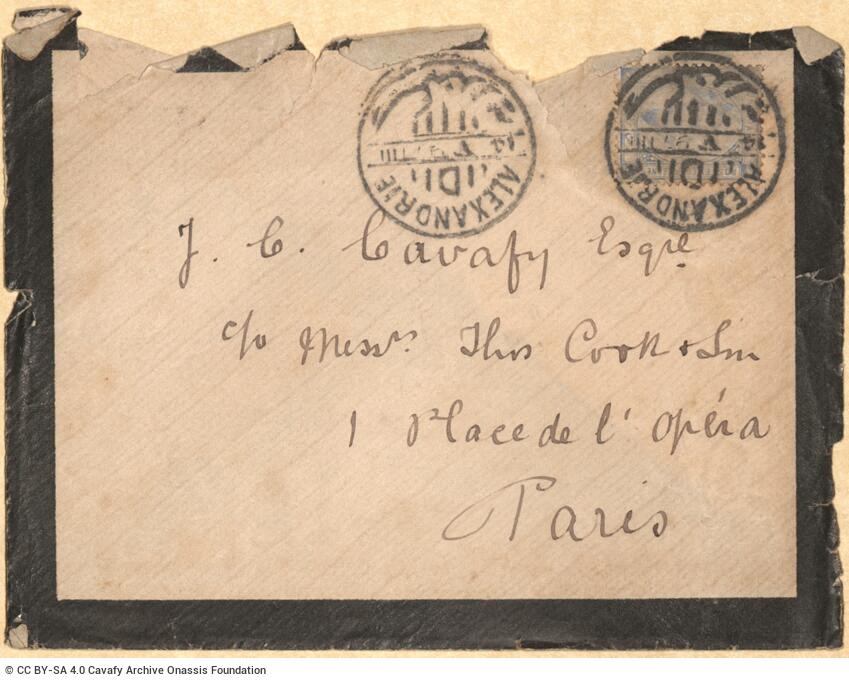 ALEXANDRIE
ALEXANDRIE
J. C. Cavafy Esqre
c/o Messrs Thos Cook & Son
1 Place de l'Opéra
Paris
© CC BY-SA 4.0 Cavafy Archive Onassis Foundation